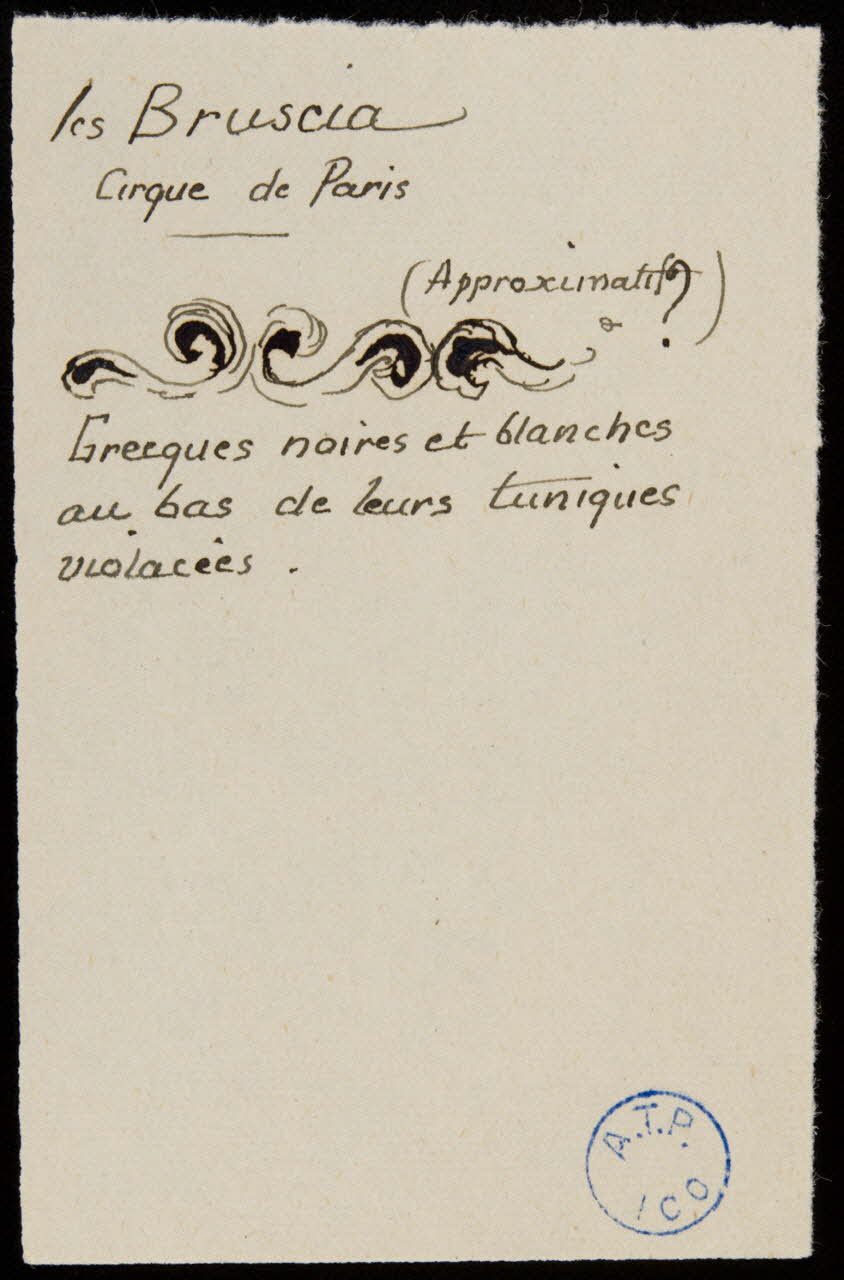 les Bruscia
Cirque de Paris
(Approximatif ?)
Grecques noires et blanches
au bas de leurs tuniques
violacées .
A.T.P.
ICO